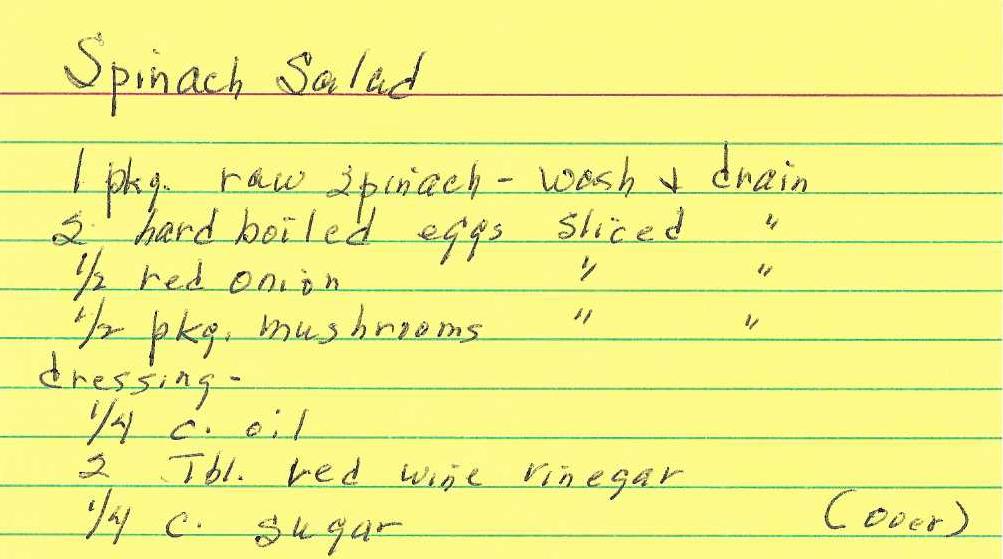 Spinach Salad
1 pkg. raw spinach - wash & drain
2 hard boiled eggs sliced "
1/2 red onion " "
1/2 pkg. mushrooms " "
dressing -
1/4 c. oil
2 Tbl. red wine vinegar
1/4 c. sugar (over)